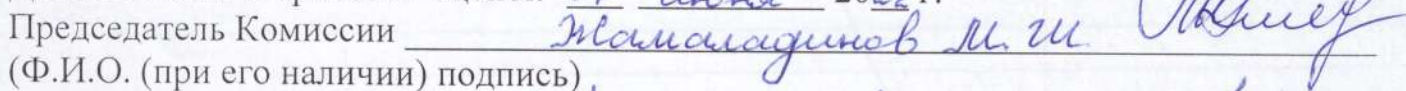 Председатель Комиссии Жамаладинов М. Ш.
(Ф.И.О. (при его наличии) подпись)